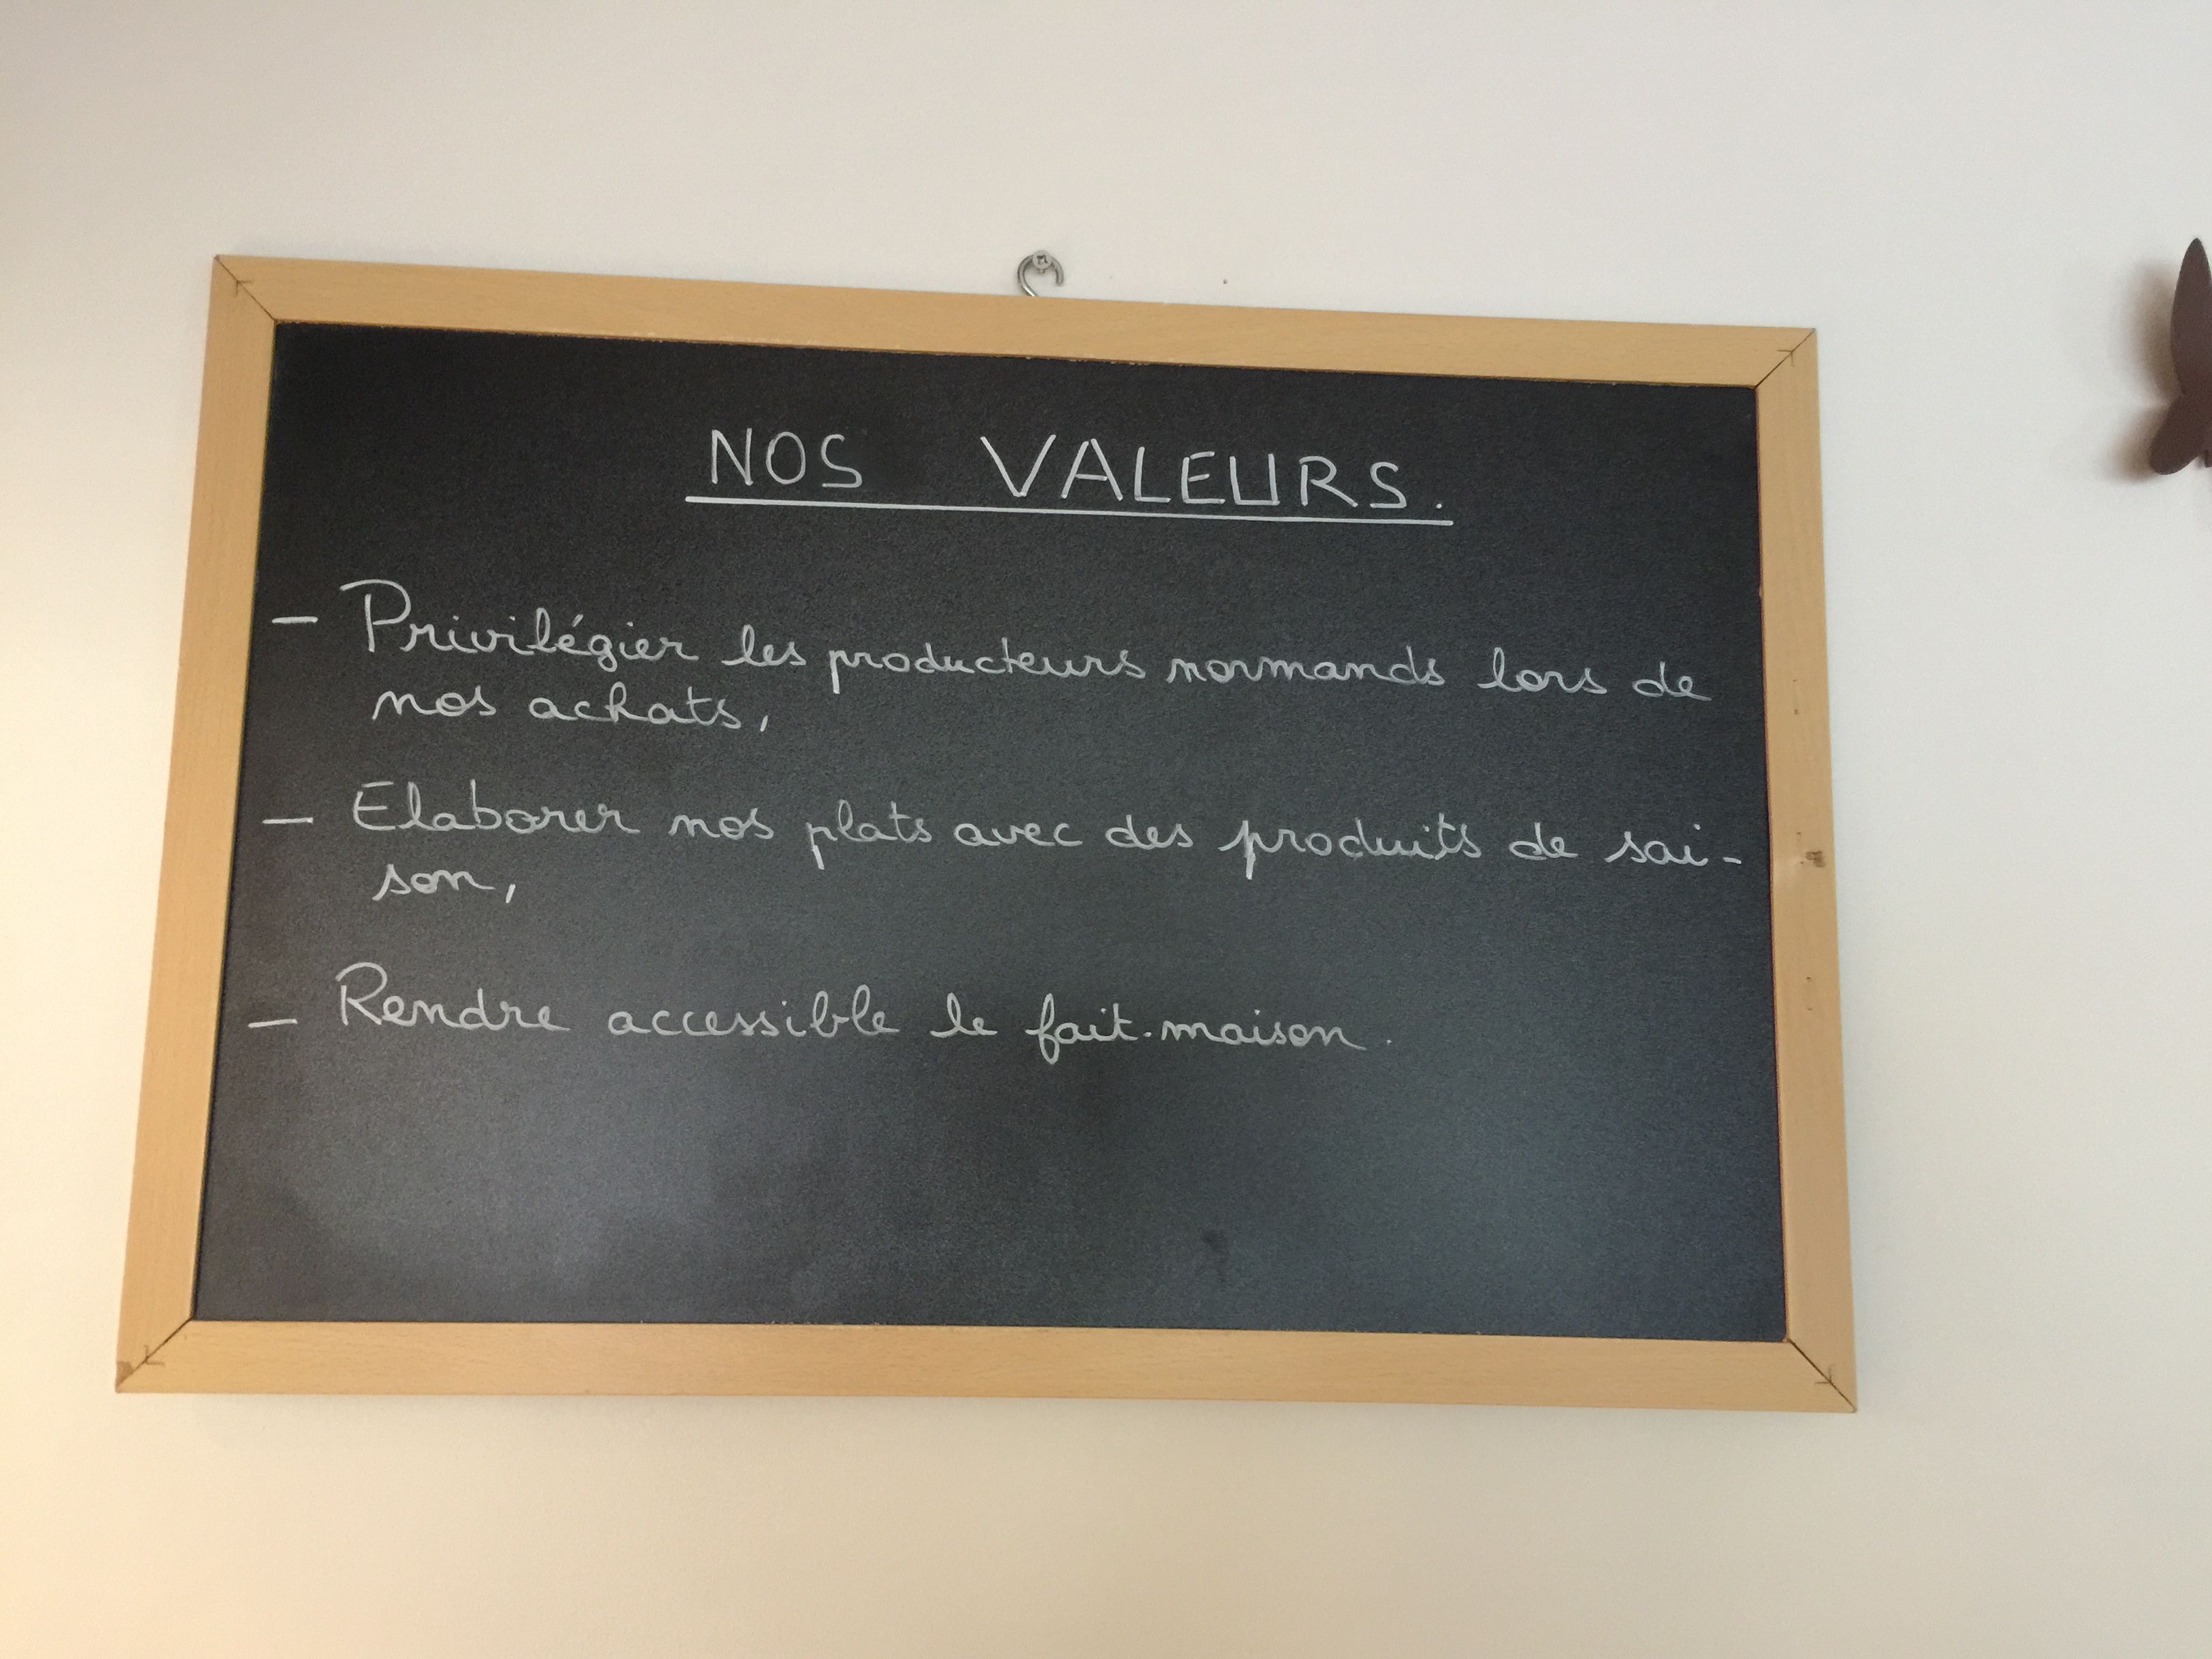 NOS VALEURS.
- Privilégier les producteurs normands lors de
nos achats,
- Elaborer nos plats avec des produits de sai-
son,
- Rendre accessible le fait-maison.